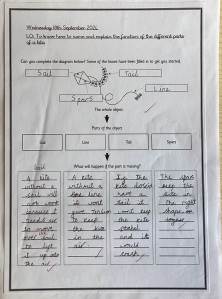 Wednesday 18th September 2024
LO: To know how to name and explain the function of the different parts
of a kite
Can you complete the diagram below? Some of the boxes have been filled in to get you started.
Sail
Tail
Line
Spars
The whole object
Parts of the object
Sail
Line
Tail
Spars
What will happen if the part is missing?
A kite
without a
sail will
not work
because it
needs
to move
air over
to lift
it up into
the air
A kite
without a
line
it wont
give tension
to keep
the kite
in the
air
If the
kite didnt
have a
tail it
wont keep
the
and it
would
crash
The spars
keep the
kite in
the right
shape